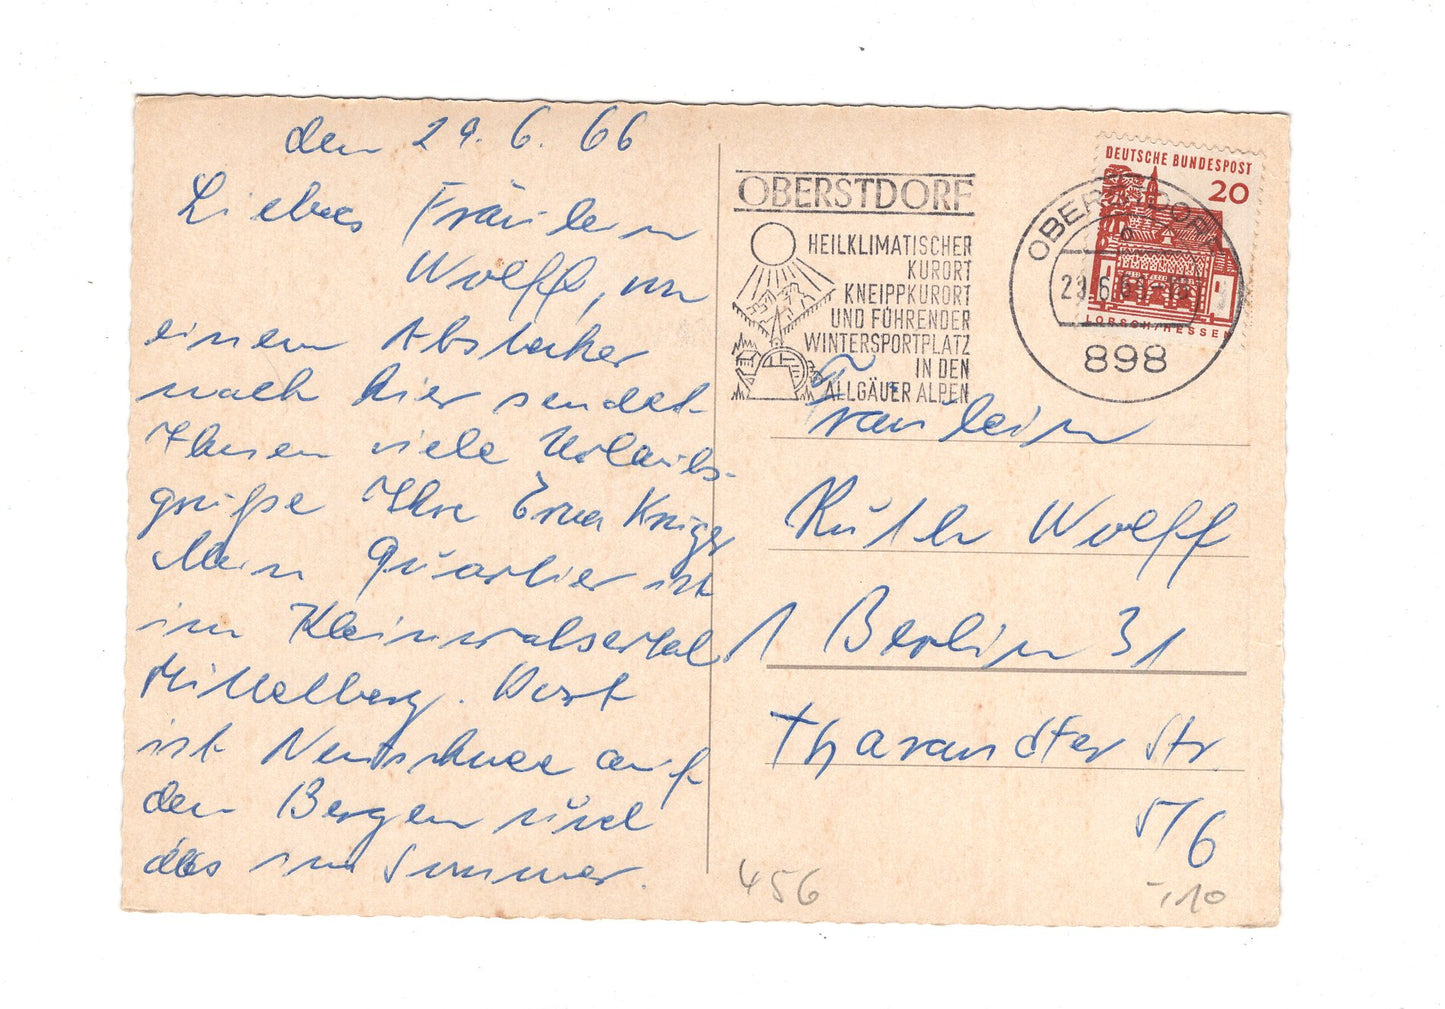 den 29. 6. 66
Liebes Fräulein
Wolff, von
einem Abstecher
nach hier sendet
Ihnen viele Urlaubs-
grüße Ihre Erna Krüger
Mein Quartier ist
im Kleinwalsertal
Mittelberg. Dort
ist Neuschnee auf
den Bergen und
das im Sommer.
OBERSTDORF
HEILKLIMATISCHER
KURORT
KNEIPPKURORT
UND FÜHRENDER
WINTERSPORTPLATZ
IN DEN
ALLGÄUER ALPEN
DEUTSCHE BUNDESPOST
20
LORSCH/HESSEN
OBERSTDORF
29.6.66
898
Fräulein
Ruth Wolff
1 Berlin 31
Tharandter Str.
5/6
456
-,10